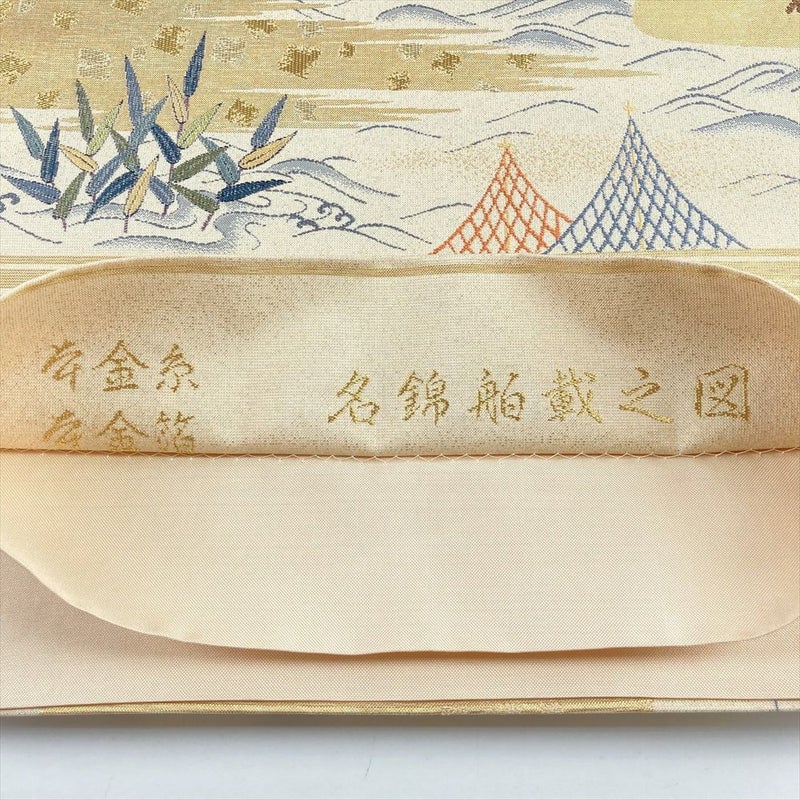 名錦舶載之図
本金糸
本金箔